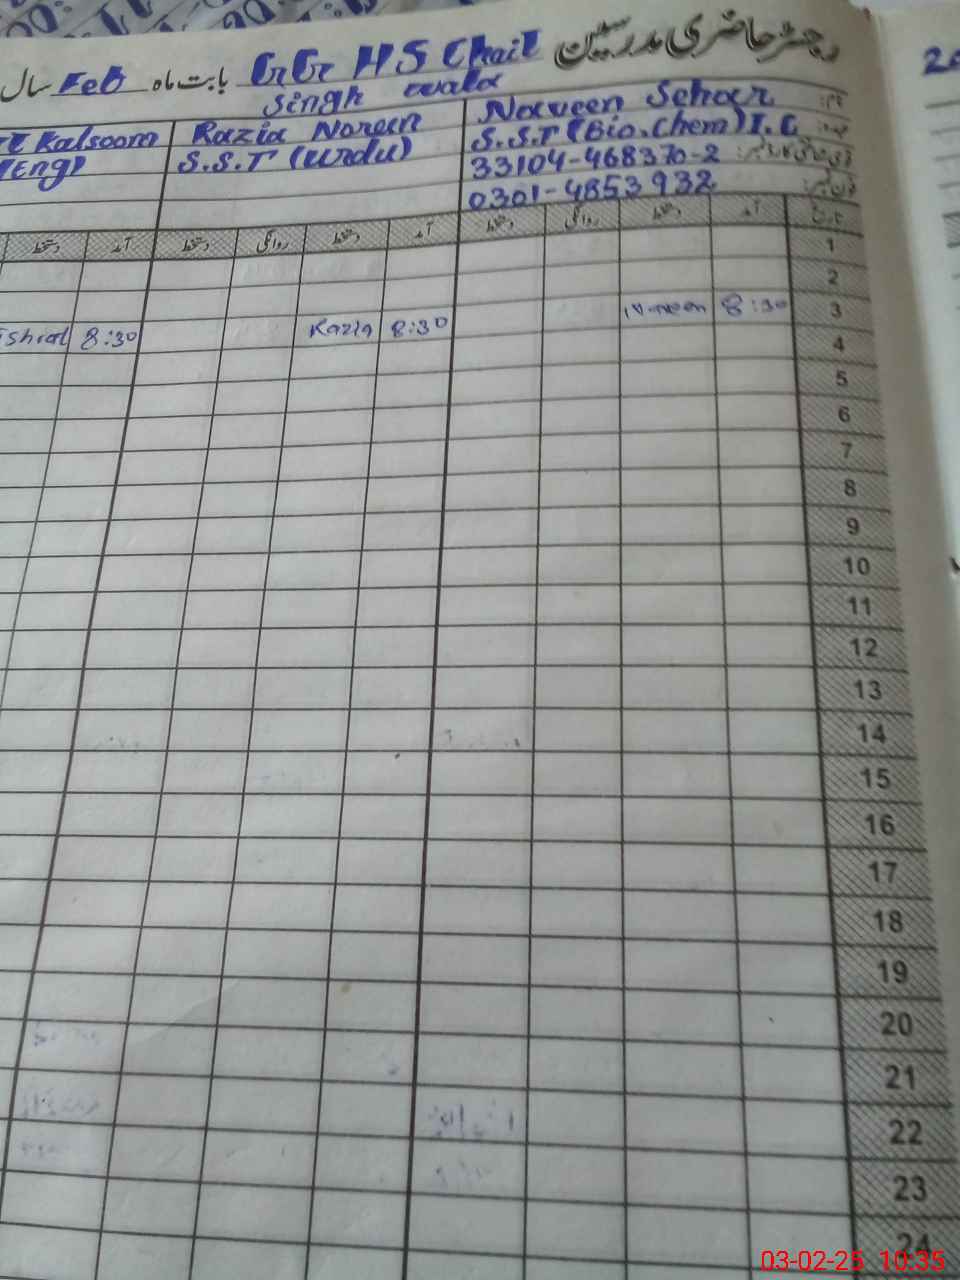 رجسٹر حاضری مدرسین GG HS Chail بابت ماہ Feb سال
Singh wala
نام: Naveen Sehar
Razia Noreen
Kalsoom
عہدہ: S.S.T (Bio.Chem) I.C
S.S.T (Urdu)
(Eng)
33104-468370-2
فون نمبر: 0301-4853932
تاریخ آمد دستخط روانگی دستخط آمد دستخط روانگی دستخط آمد دستخط
1
2
3 8:30
8:30 Razia 8:30 Ishrat
4
5
6
7
8
9
10
11
12
13
14
15
16
17
18
19
20
21
22
23
24
03-02-25 10:35